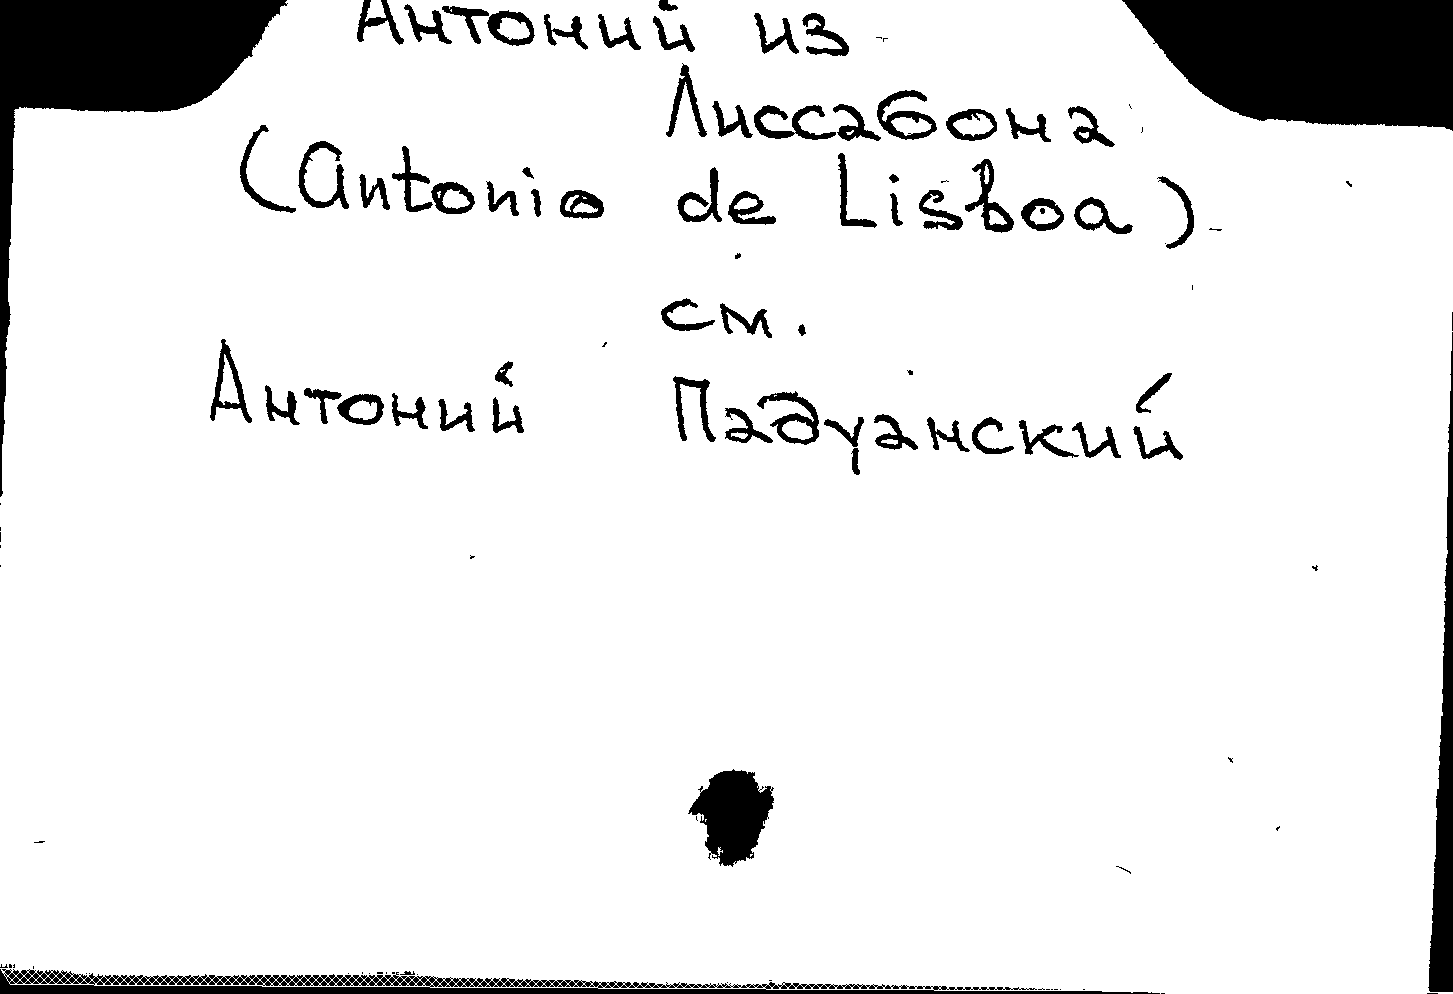 Антоний из
Лиссабона
(Antonio de Lisboa)
см.
Антоний Падуанский